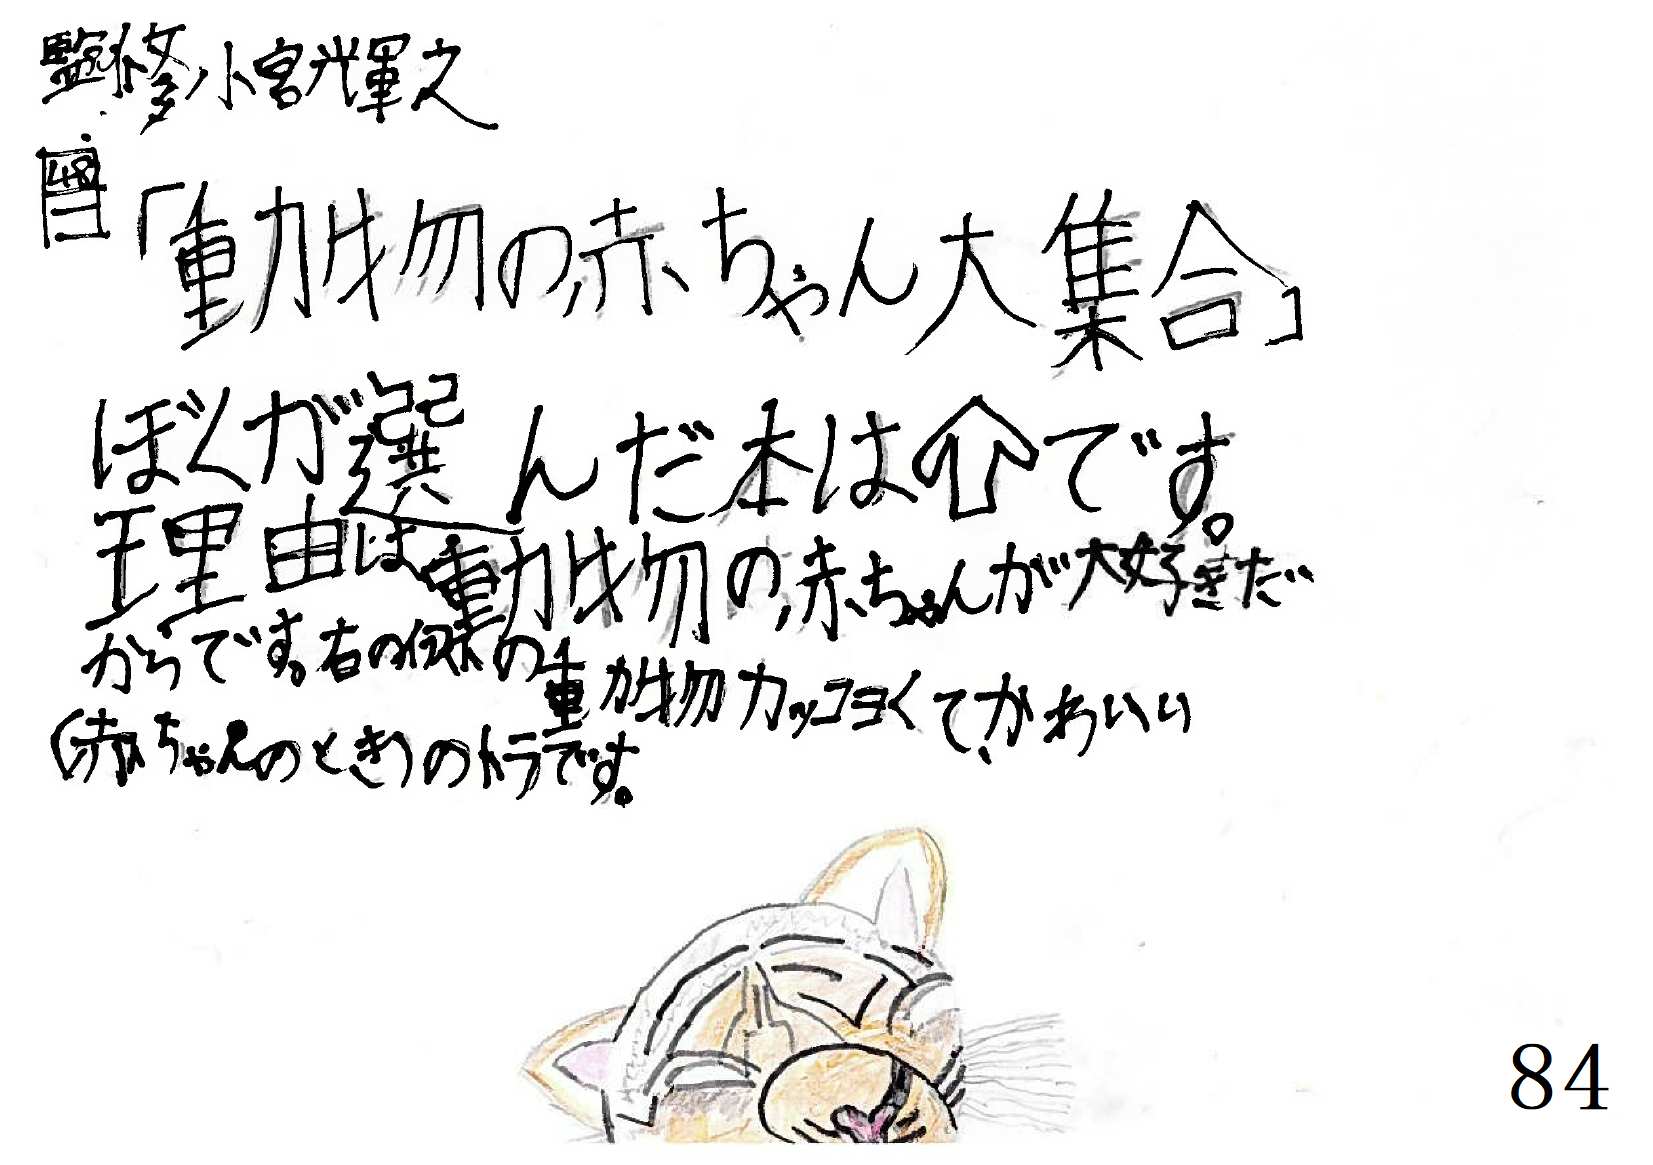 監修小宮輝之
48
「動物の赤ちゃん大集合」
ぼくが選んだ本は⇧です。
理由は動物の赤ちゃんが大好きだ
からです。右の係の動物カッコヨくて、かわいい
(赤ちゃんのとき)のトラです。
84